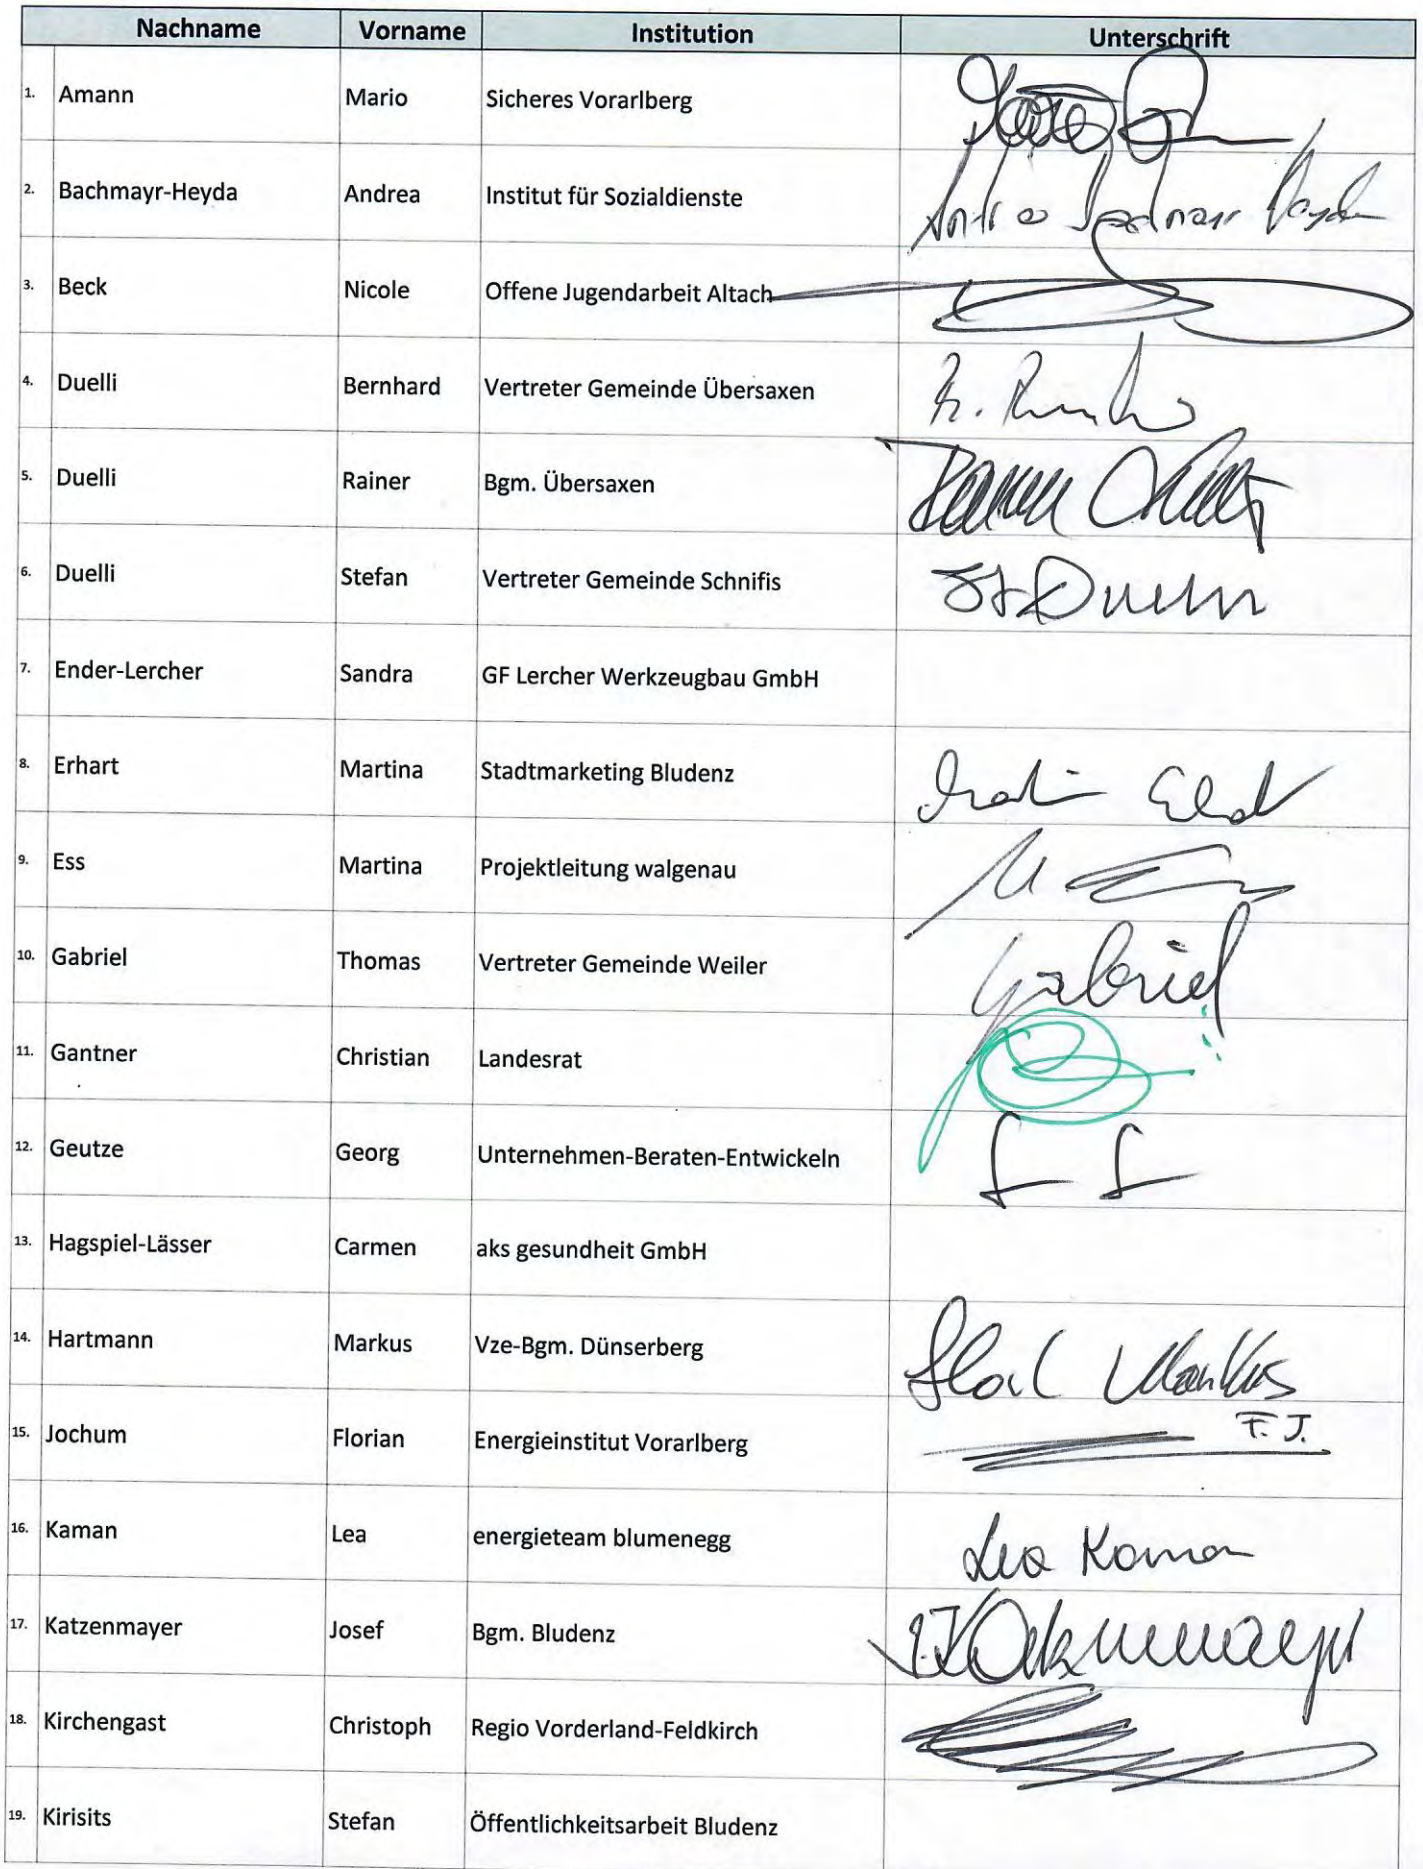 Nachname Vorname Institution Unterschrift
1. Amann Mario Sicheres Vorarlberg
2. Bachmayr-Heyda Andrea Institut für Sozialdienste
3. Beck Nicole Offene Jugendarbeit Altach
4. Duelli Bernhard Vertreter Gemeinde Übersaxen
5. Duelli Rainer Bgm. Übersaxen
6. Duelli Stefan Vertreter Gemeinde Schnifis
7. Ender-Lercher Sandra GF Lercher Werkzeugbau GmbH
8. Erhart Martina Stadtmarketing Bludenz
9. Ess Martina Projektleitung walgenau
10. Gabriel Thomas Vertreter Gemeinde Weiler Gabriel
11. Gantner Christian Landesrat
12. Geutze Georg Unternehmen-Beraten-Entwickeln
13. Hagspiel-Lässer Carmen aks gesundheit GmbH
14. Hartmann Markus Vze-Bgm. Dünserberg Markus
15. Jochum Florian Energieinstitut Vorarlberg F.J.
16. Kaman Lea energieteam blumenegg Lea Kaman
17. Katzenmayer Josef Bgm. Bludenz
18. Kirchengast Christoph Regio Vorderland-Feldkirch
19. Kirisits Stefan Öffentlichkeitsarbeit Bludenz